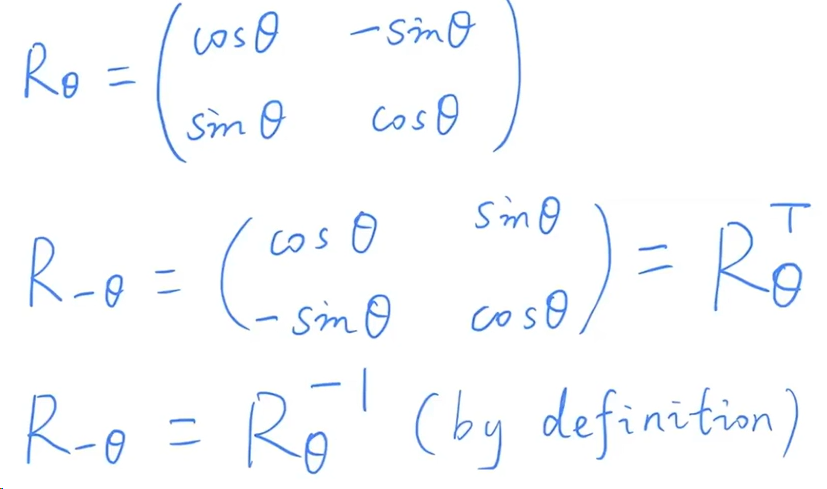 R_θ = ( cos θ   -sin θ ; sin θ   cos θ )
R_{-θ} = ( cos θ   sin θ ; -sin θ   cos θ ) = R_θ^T
R_{-θ} = R_θ^{-1} (by definition)